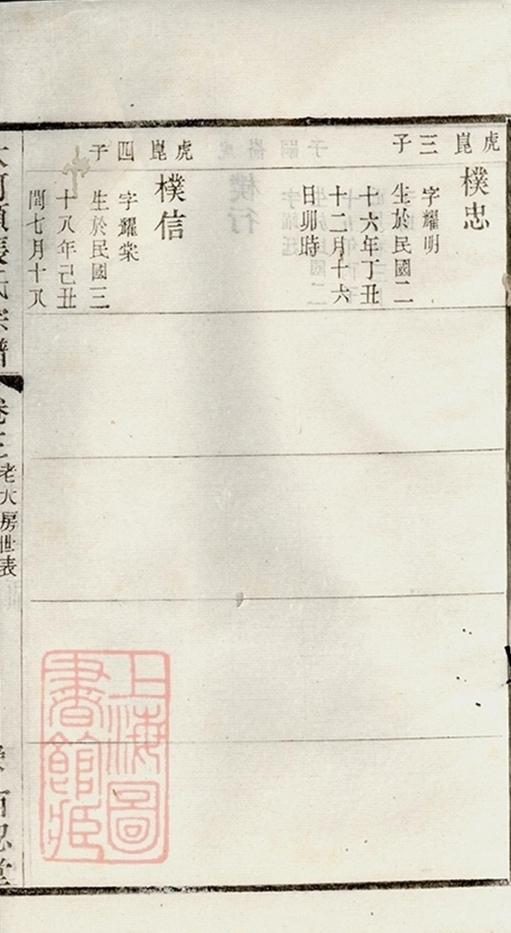 虎崑三子
樸忠
字耀明
生於民國二
十六年丁丑
十二月十六
日卯時
虎崑四子
樸信
字耀棠
生於民國三
十八年己丑
閏七月十八
張氏宗譜
卷三
老大房世表
百忍堂
上海圖
書館藏